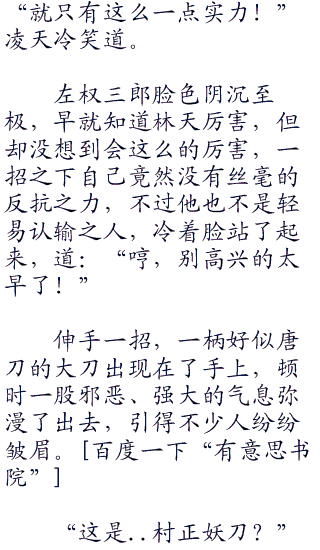 “就只有这么一点实力！”
凌天冷笑道。
左权三郎脸色阴沉至
极，早就知道林天厉害，但
却没想到会这么的厉害，一
招之下自己竟然没有丝毫的
反抗之力，不过他也不是轻
易认输之人，冷着脸站了起
来，道：“哼，别高兴的太
早了！”
伸手一招，一柄好似唐
刀的大刀出现在了手上，顿
时一股邪恶、强大的气息弥
漫了出去，引得不少人纷纷
皱眉。[百度一下“有意思书
院”]
“这是..村正妖刀？”